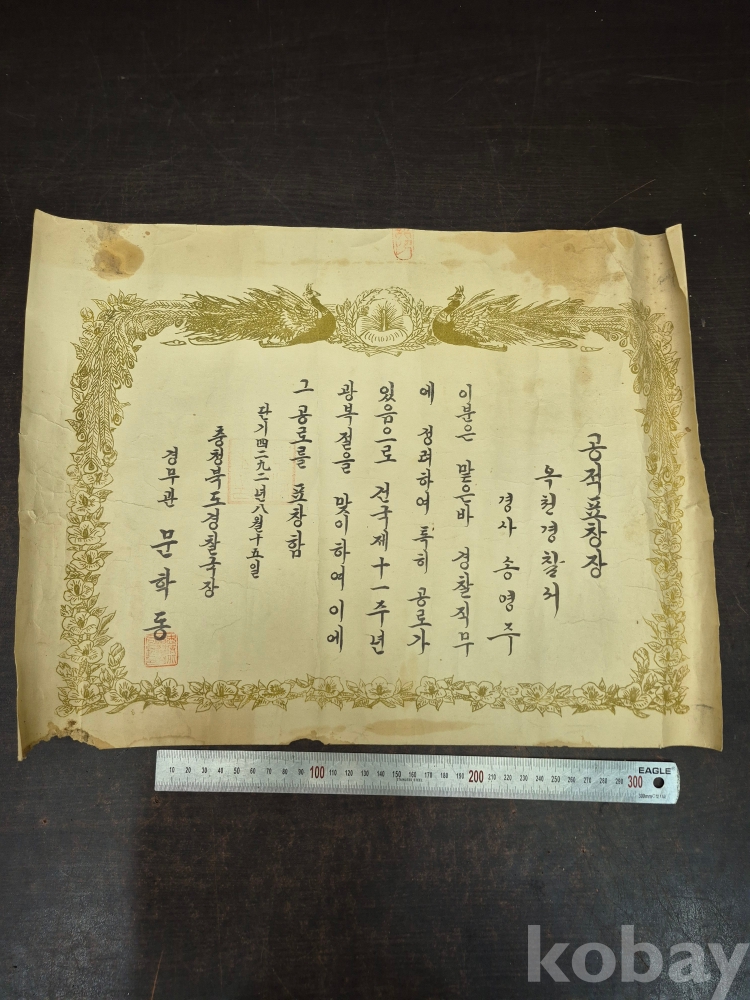 공적표창장
옥천경찰서
경사 송명주
이분은 맡은바 경찰직무
에 정려하여 특히 공로가
있음으로 건국제十一주년
광복절을 맞이하여 이에
그 공로를 표창함
단기四二九二년八월十五일
충청북도경찰국장
경무관 문학동
10 20 30 40 50 60 70 80 90 100 110 120 130 140 150 160 170 180 190 200 210 220 230 240 250 260 270 280 290 300
EAGLE
kobay